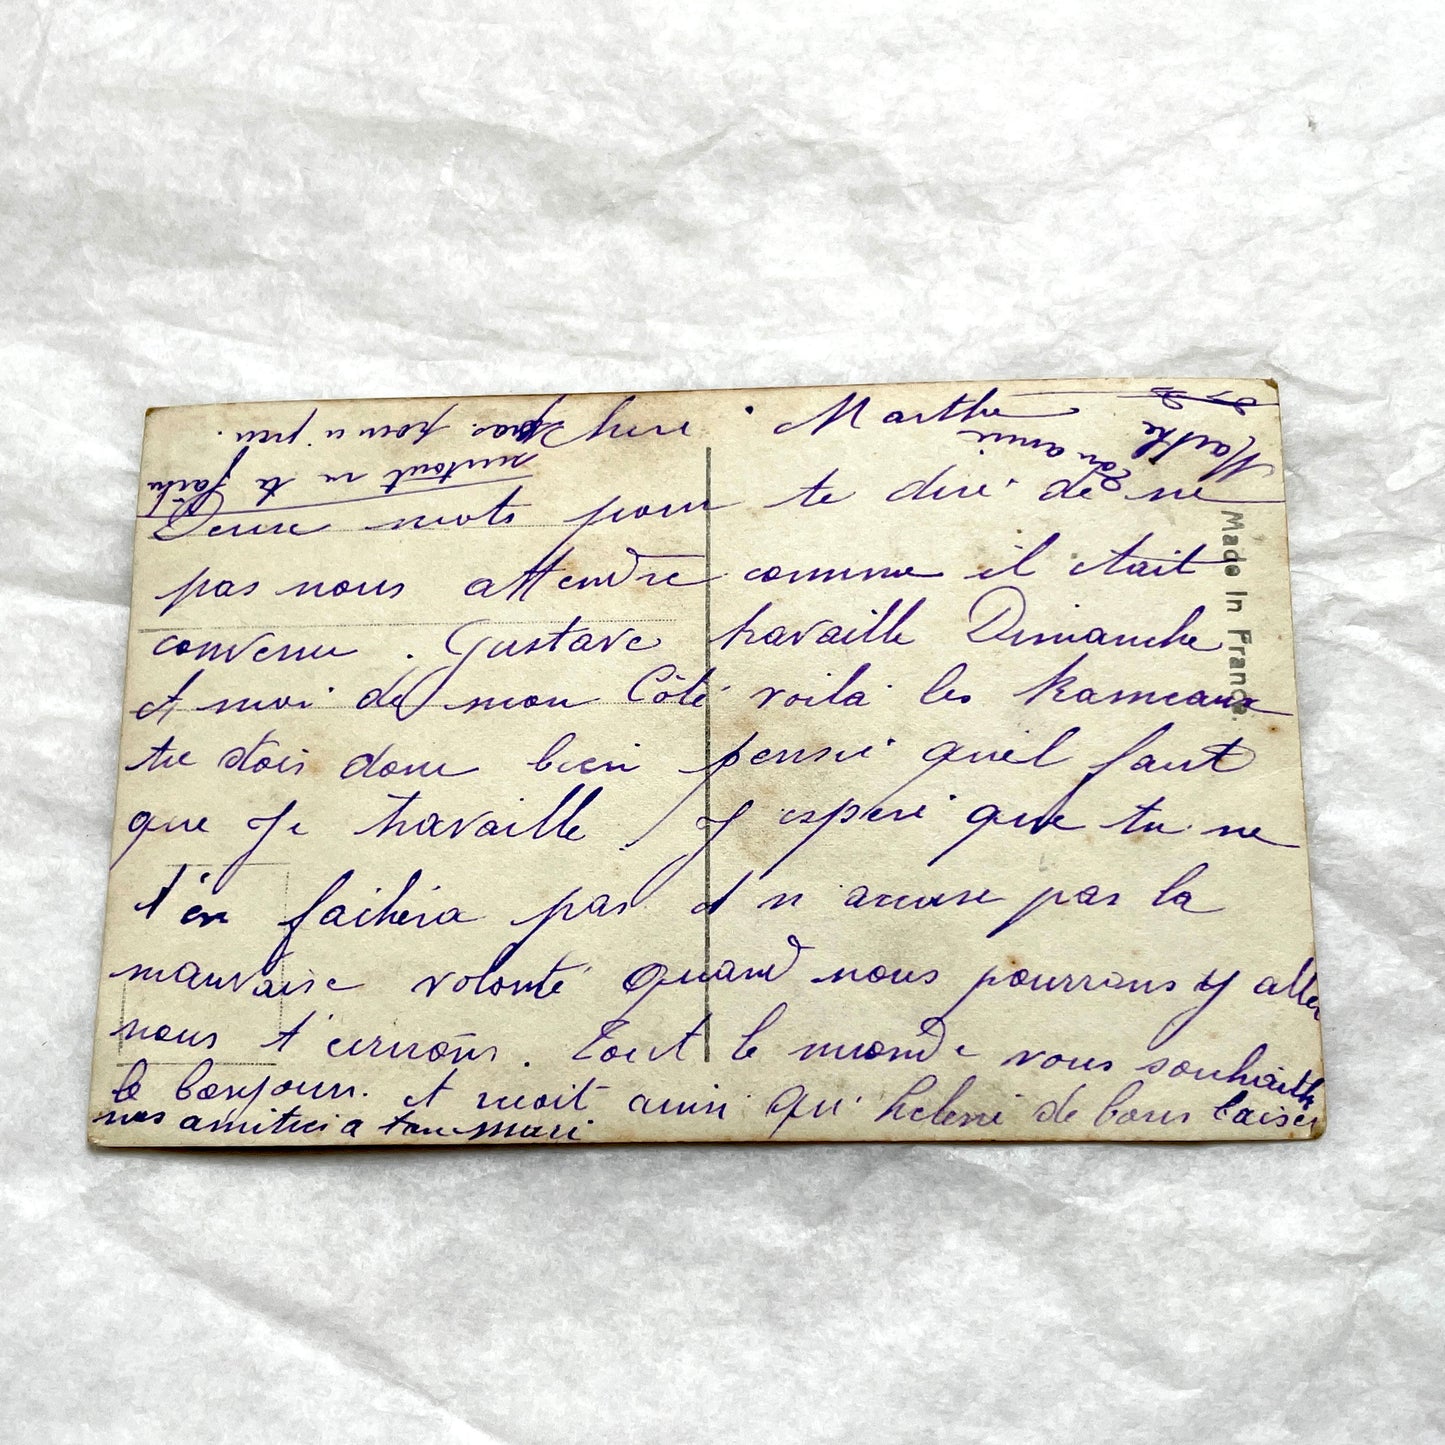 Chere Marthe
Deux mots pour te dire de ne
pas nous attendre comme il etait
convenu. Gustave travaille Dimanche
et moi de mon Côté voila les Rameaux
tu dois donc bien pensé quil faut
que Je travaille. J'espere que tu ne
t'en fachera pas et n accuse pas la
mauvaise volonté Quand nous pourrons y aller
nous t'ecrirons. Tout le monde vous souhaite
le bonjour. et reçoit ainsi qu' helene de bons baiser
nos amities a ton mari
Ton amie
Marthe
surtout ne te fache
pas pour si peu.
Made In France.